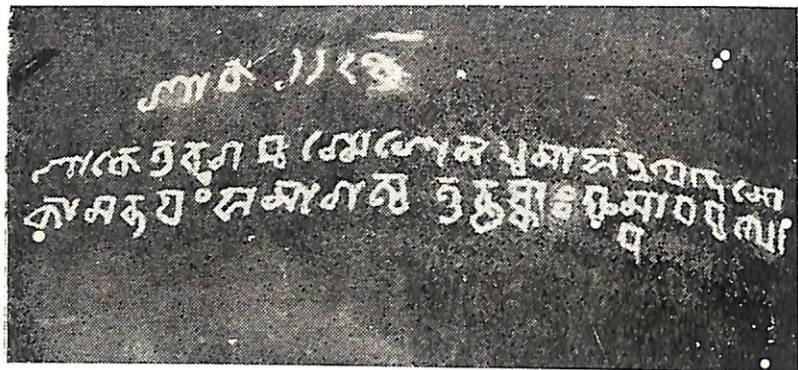 শাকে ১১২৭
শাকে তুরগযুগ্মেশে মধুমাসত্রয়োদশে
কামরূপং সমাগত্য তুরুষ্কাঃ ক্ষয়মাযযুঃ